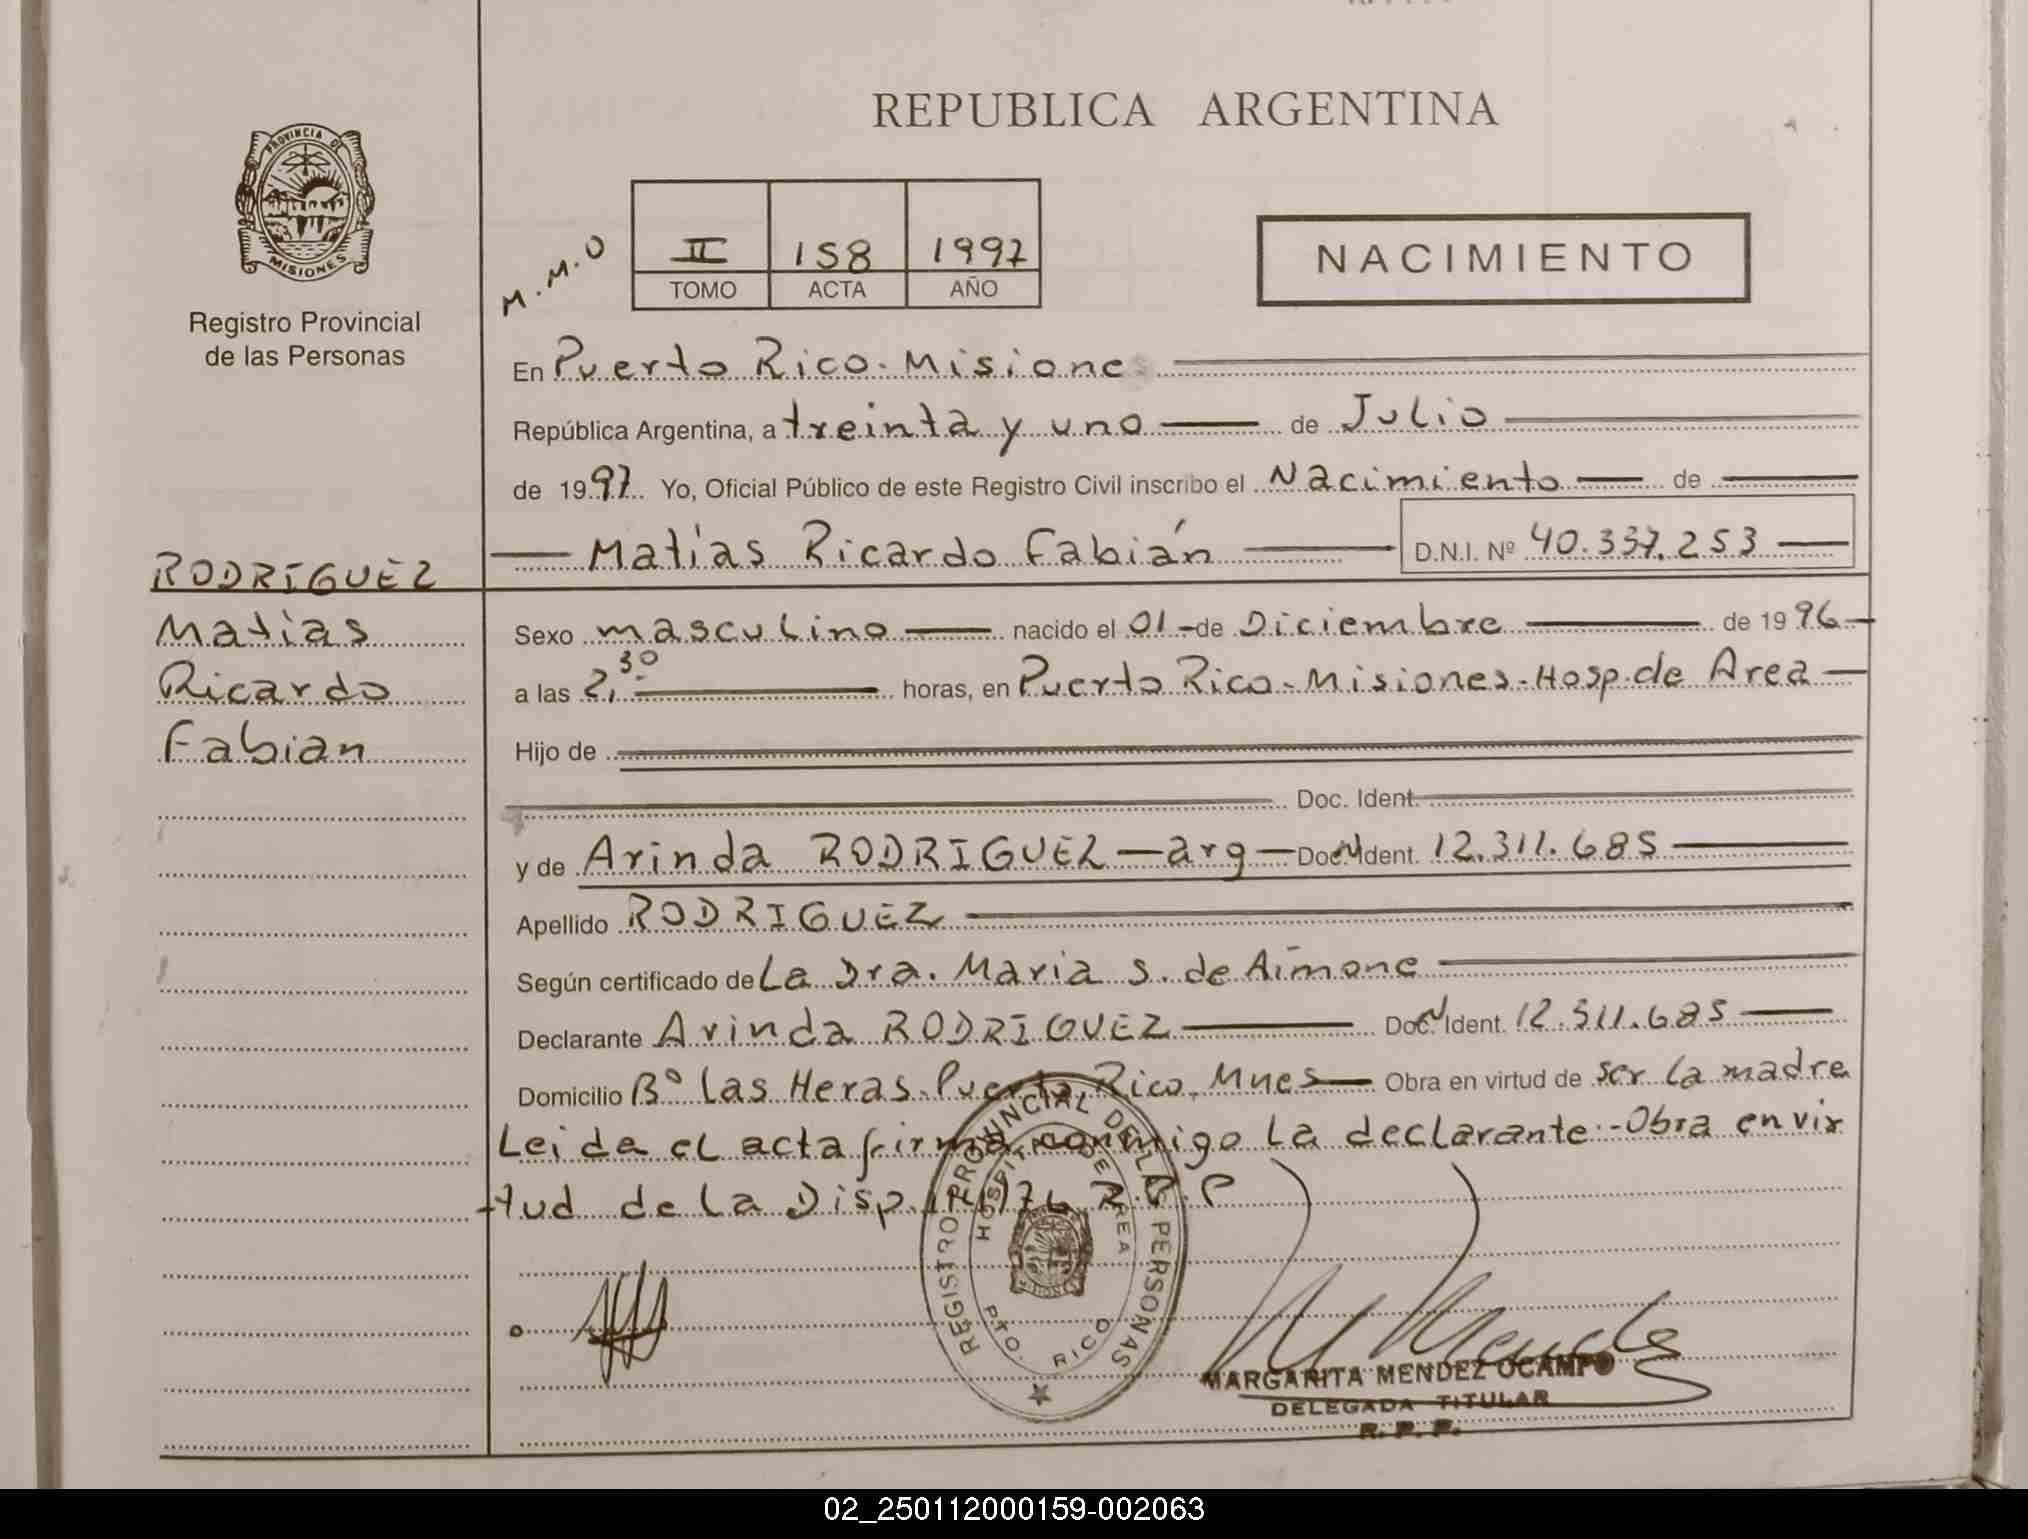 REPUBLICA ARGENTINA
PROVINCIA DE
MISIONES
Registro Provincial
de las Personas
M.M.O
II 158 1997
TOMO ACTA AÑO
NACIMIENTO
En Puerto Rico. Misiones
República Argentina, a treinta y uno de Julio
de 1997 Yo, Oficial Público de este Registro Civil inscribo el Nacimiento de
Matías Ricardo Fabián D.N.I. Nº 40.337.253
RODRIGUEZ
Matías
Ricardo
Fabian
Sexo masculino nacido el 01 de Diciembre de 1996
a las 2,30 horas, en Puerto Rico - Misiones - Hosp. de Area
Hijo de
Doc. Ident.
y de Arinda RODRIGUEZ - arg - Doc. Ident. 12.311.685
Apellido RODRIGUEZ
Según certificado de La Dra. Maria S. de Aimone
Declarante Arinda RODRIGUEZ Doc. Ident. 12.311.685
Domicilio Bº Las Heras. Puerto Rico. Mnes Obra en virtud de ser la madre
Leida el acta firma conmigo la declarante.-Obra en vir
tud de la Disp. R.P.P
REGISTRO PROVINCIAL DE LAS PERSONAS
HOSPITAL DE AREA
PTO. RICO
MARGARITA MENDEZ OCAMPO
DELEGADA TITULAR
R. P. P.
02_250112000159-002063